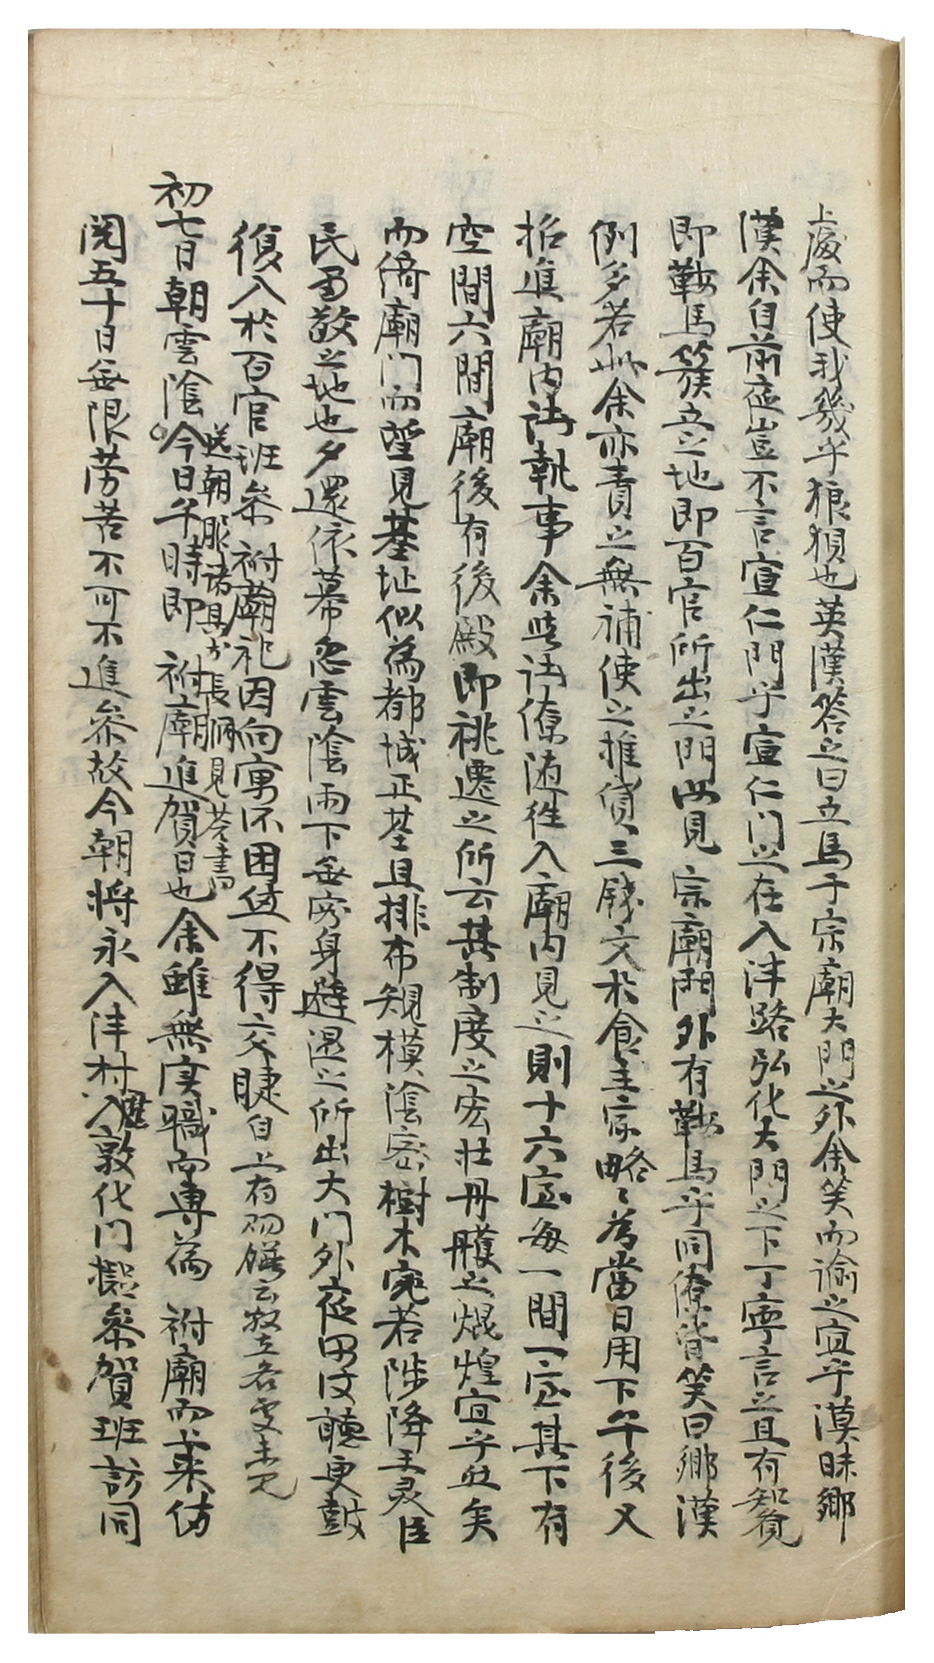 處而使我幾乎狼狽也英漢答之曰立馬于宗廟大門之外余笑而諭之宜乎漠昧鄉
漢余自前夜豈不言宣仁門乎宣仁門之在入泮路弘化大門之下丁寧言之且有知覺
即鞍馬簇立之地即百官所出之門必見 宗廟門外有鞍馬乎同僚皆笑曰鄉漢
例多若此余亦責之無補使之推貸三錢文於食主家略略為當日用下午後又
招進廟內諸執事余與諸僚随往入廟內見之則十六室每一間一室其下有
空間六間廟後有後殿即祧遷之所云其制度之宏壯丹雘之焜煌宜乎壯矣
而倚廟門而望見基址似為都城正基且排布規模陰密樹木宛若陟降主灵臣
民曷敢之地也夕還依幕忽雲陰雨下無容身避濕之所出大門外夜 聽更鼓
復入於百官班參 祔廟礼因向寓所困惫不得交睫自上有 饌云
送朝服諸具于張 見答書
初七日朝雲陰今日午時即 祔廟進賀日也余雖無實職而專為 祔廟而來仿
閲五十日無限勞苦不可不進參故今朝將永入泮村進入敦化門擬參賀班訪同